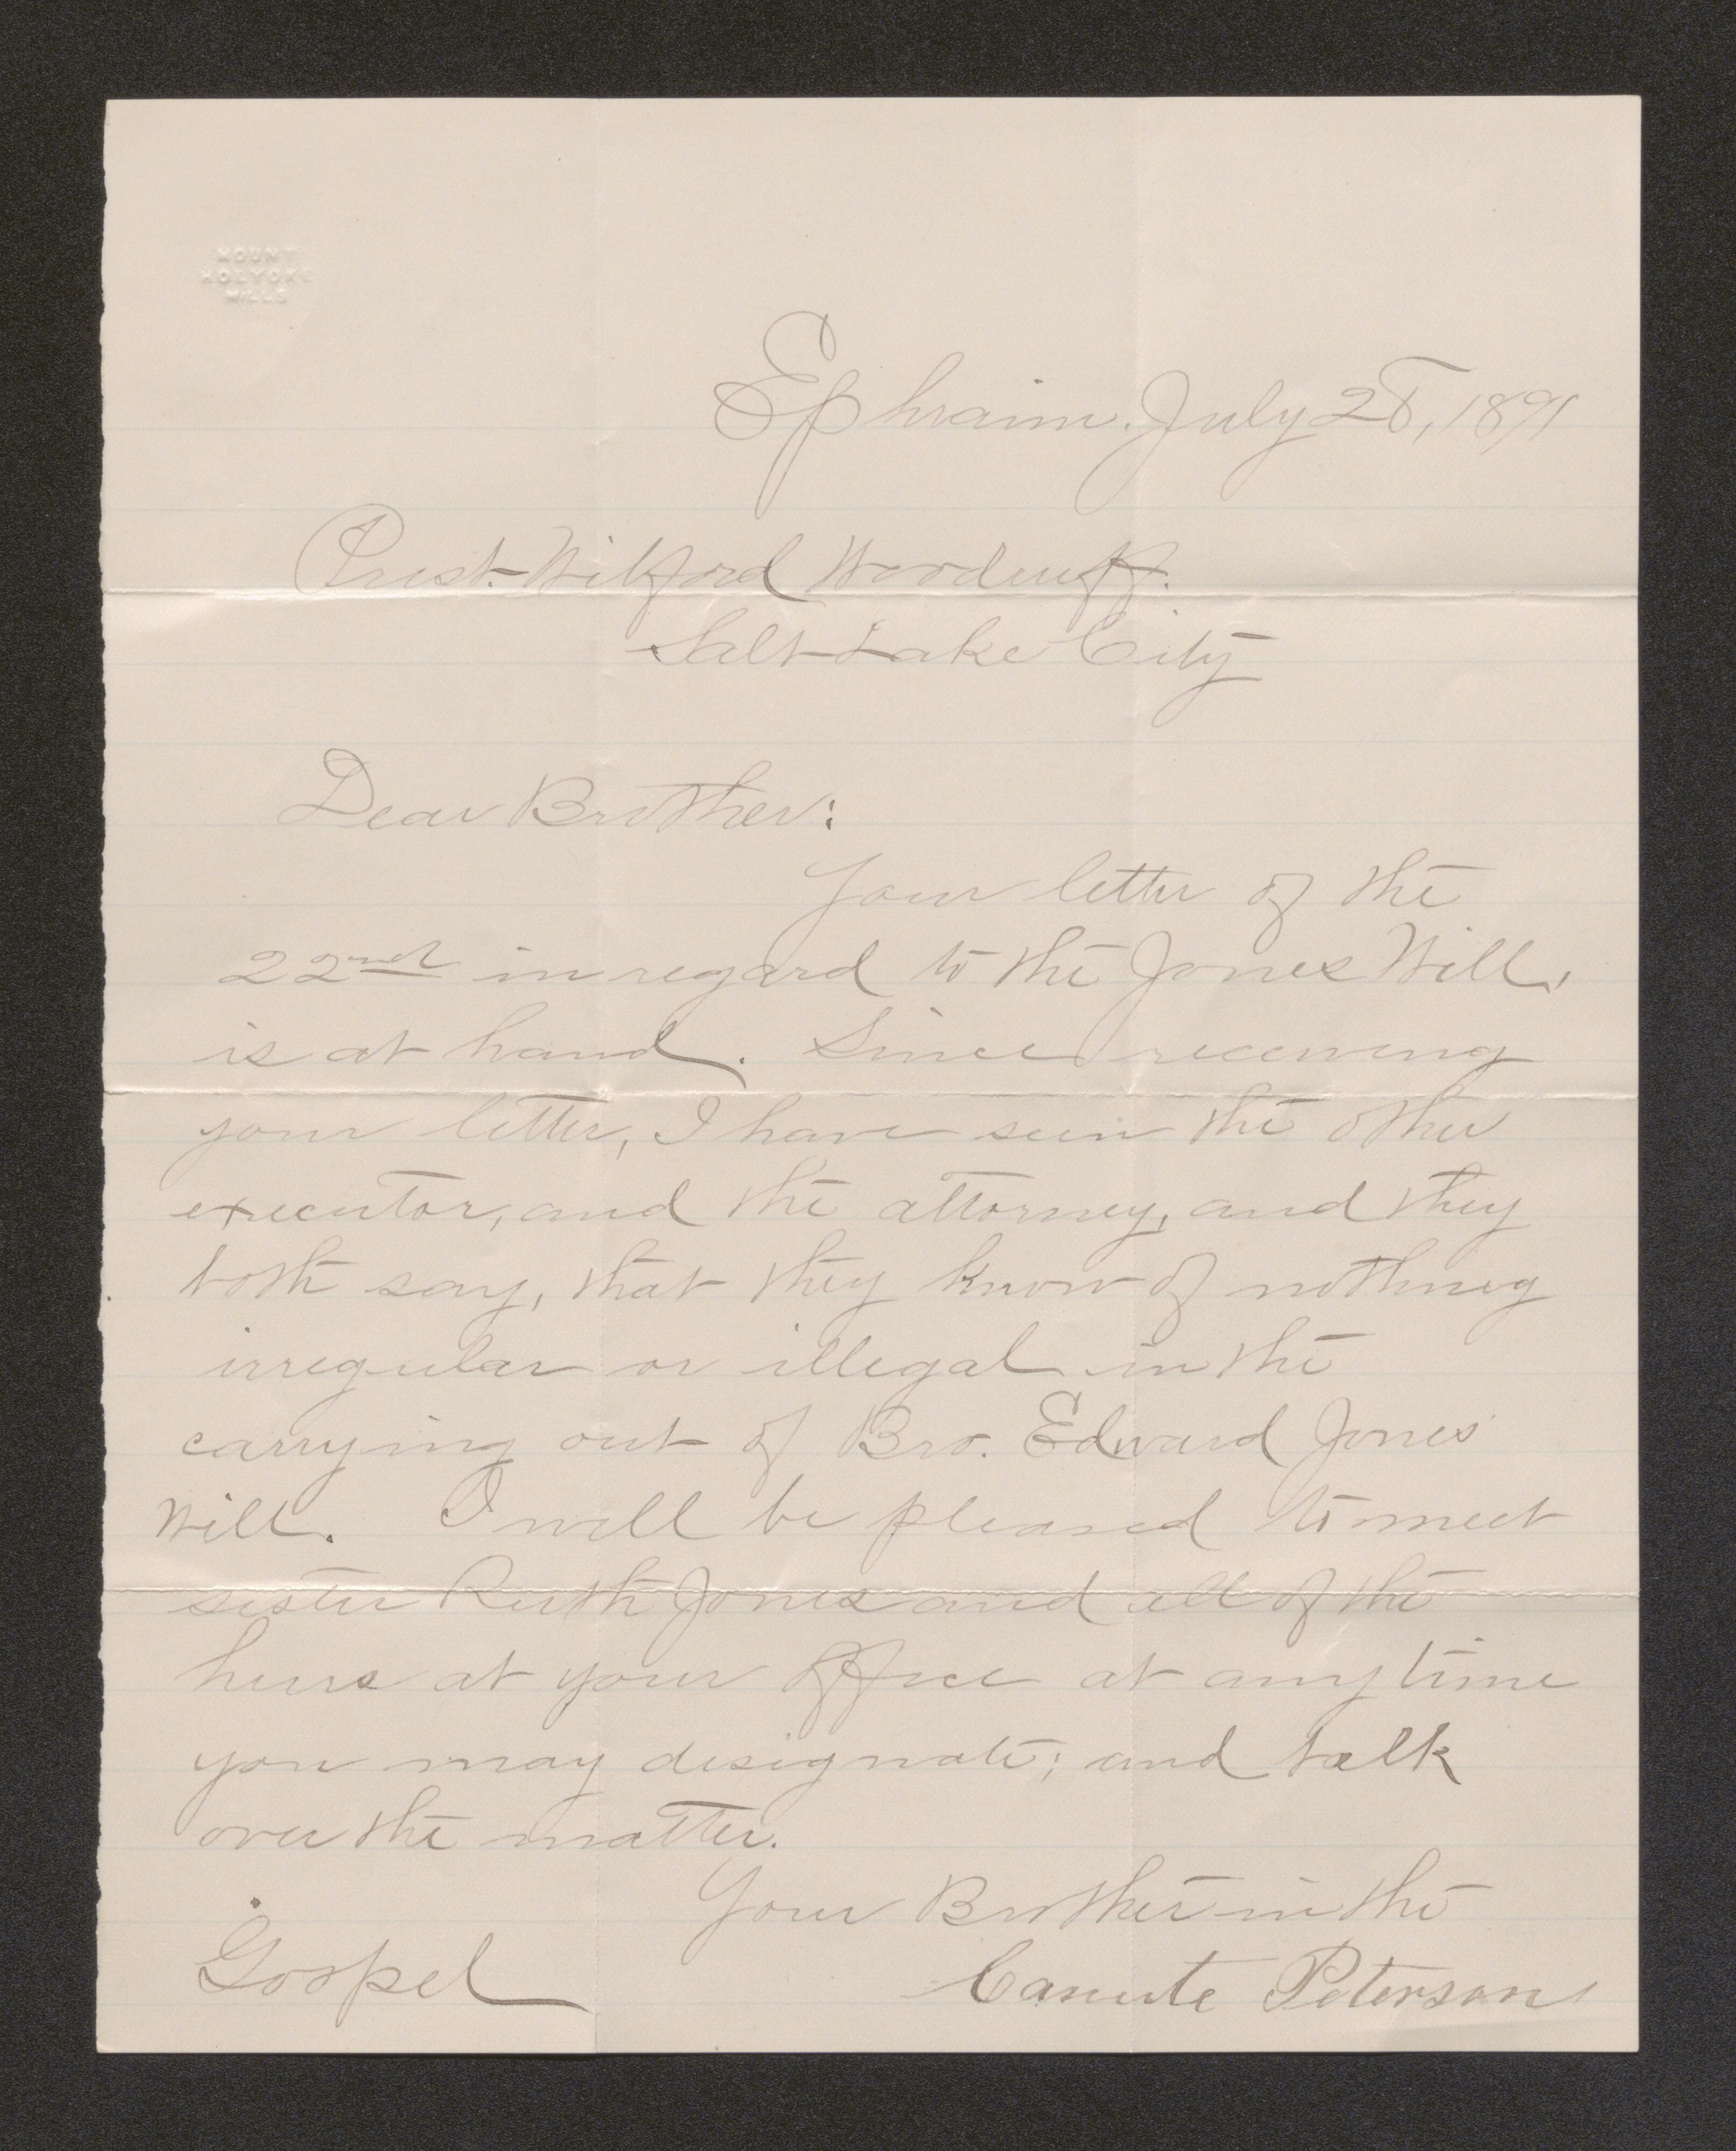 MOUNT
HOLYOKE
MILLS
Ephraim. July 28, 1891
Prest. Wilford Woodruff.
Salt Lake City
Dear Brother:
Your letter of the
22nd in regard to the Jones Will,
is at hand. Since receiving
your letter, I have seen the other
executor, and the attorney, and they
both say, that they know of nothing
irregular or illegal in the
carrying out of Bro. Edward Jones
Will. I will be pleased to meet
sister Ruth Jones and all of the
heirs at your office at any time
you may designate; and talk
over the matter.
Your Brother in the
Gospel
Canute Peterson